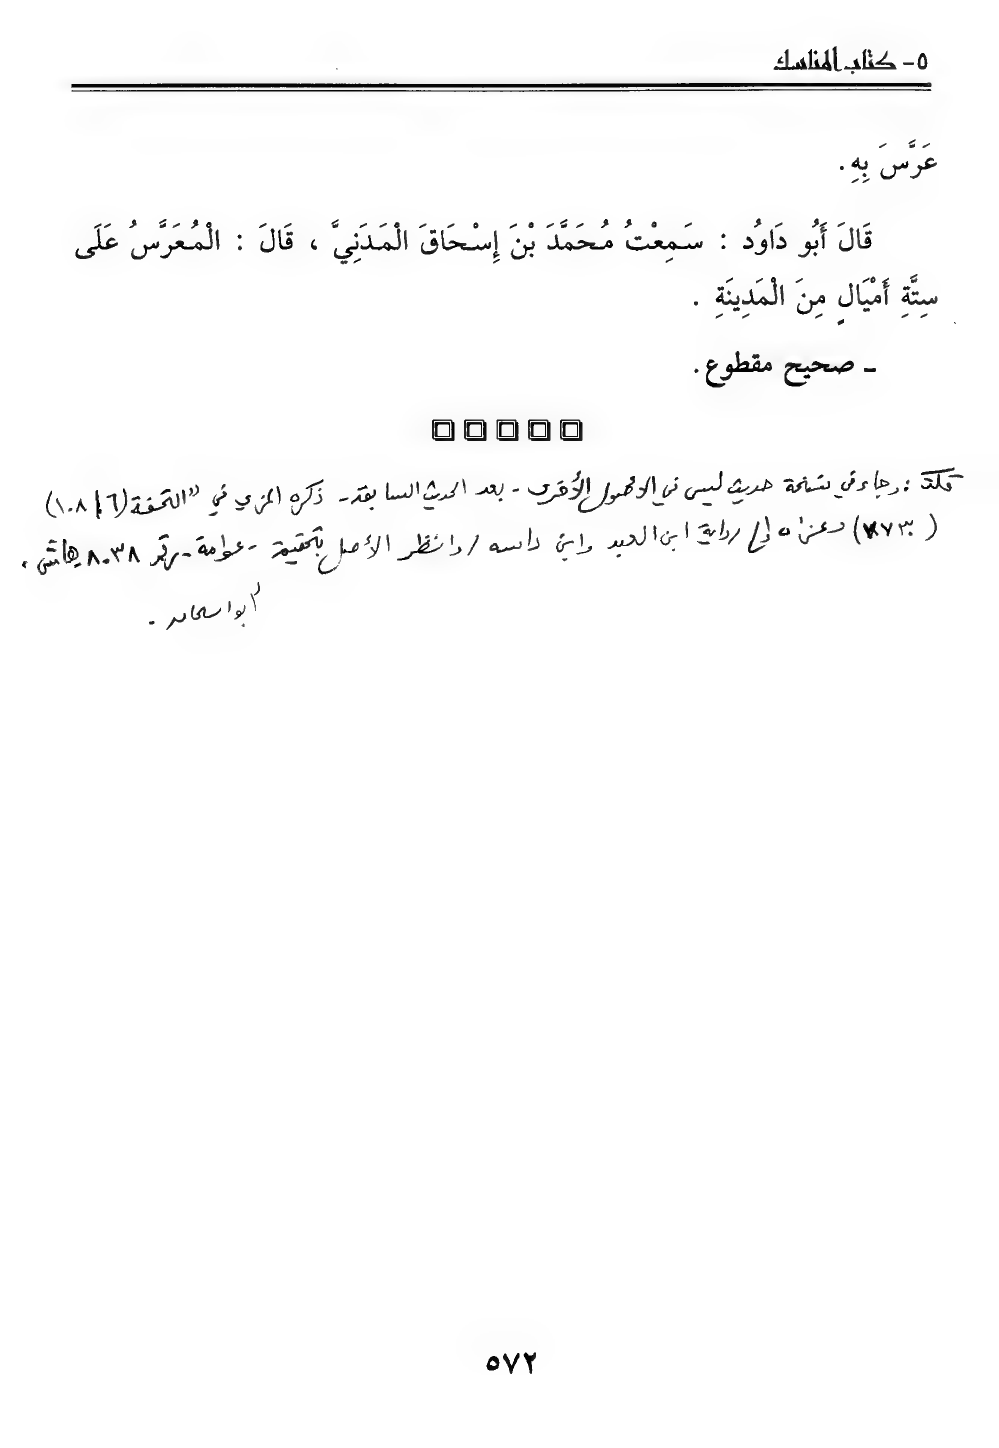 ٥- كتاب المناسك
عَرَّسَ بِهِ.
قَالَ أَبُو دَاوُد : سَمِعْتُ مُحَمَّدَ بْنَ إِسْحَاقَ الْمَدَنِيَّ ، قَالَ : الْمُعَرَّسُ عَلَى
سِتَّةِ أَمْيَالٍ مِنَ الْمَدِينَةِ .
ـ صحيح مقطوع.
قلت : وجاء في نسخة حديث ليس في الأصول الأخرى - بعد الحديث السابق - ذكره المزي في "التحفة (١٠٨/٦)
(٧٧٣٠) وعزاه إلى رواية ابن العبد وابن داسه / وانظر الأصل بتحقيق - عوامة - رقم ٨٠٣٨ هامش ،
٥٧٢